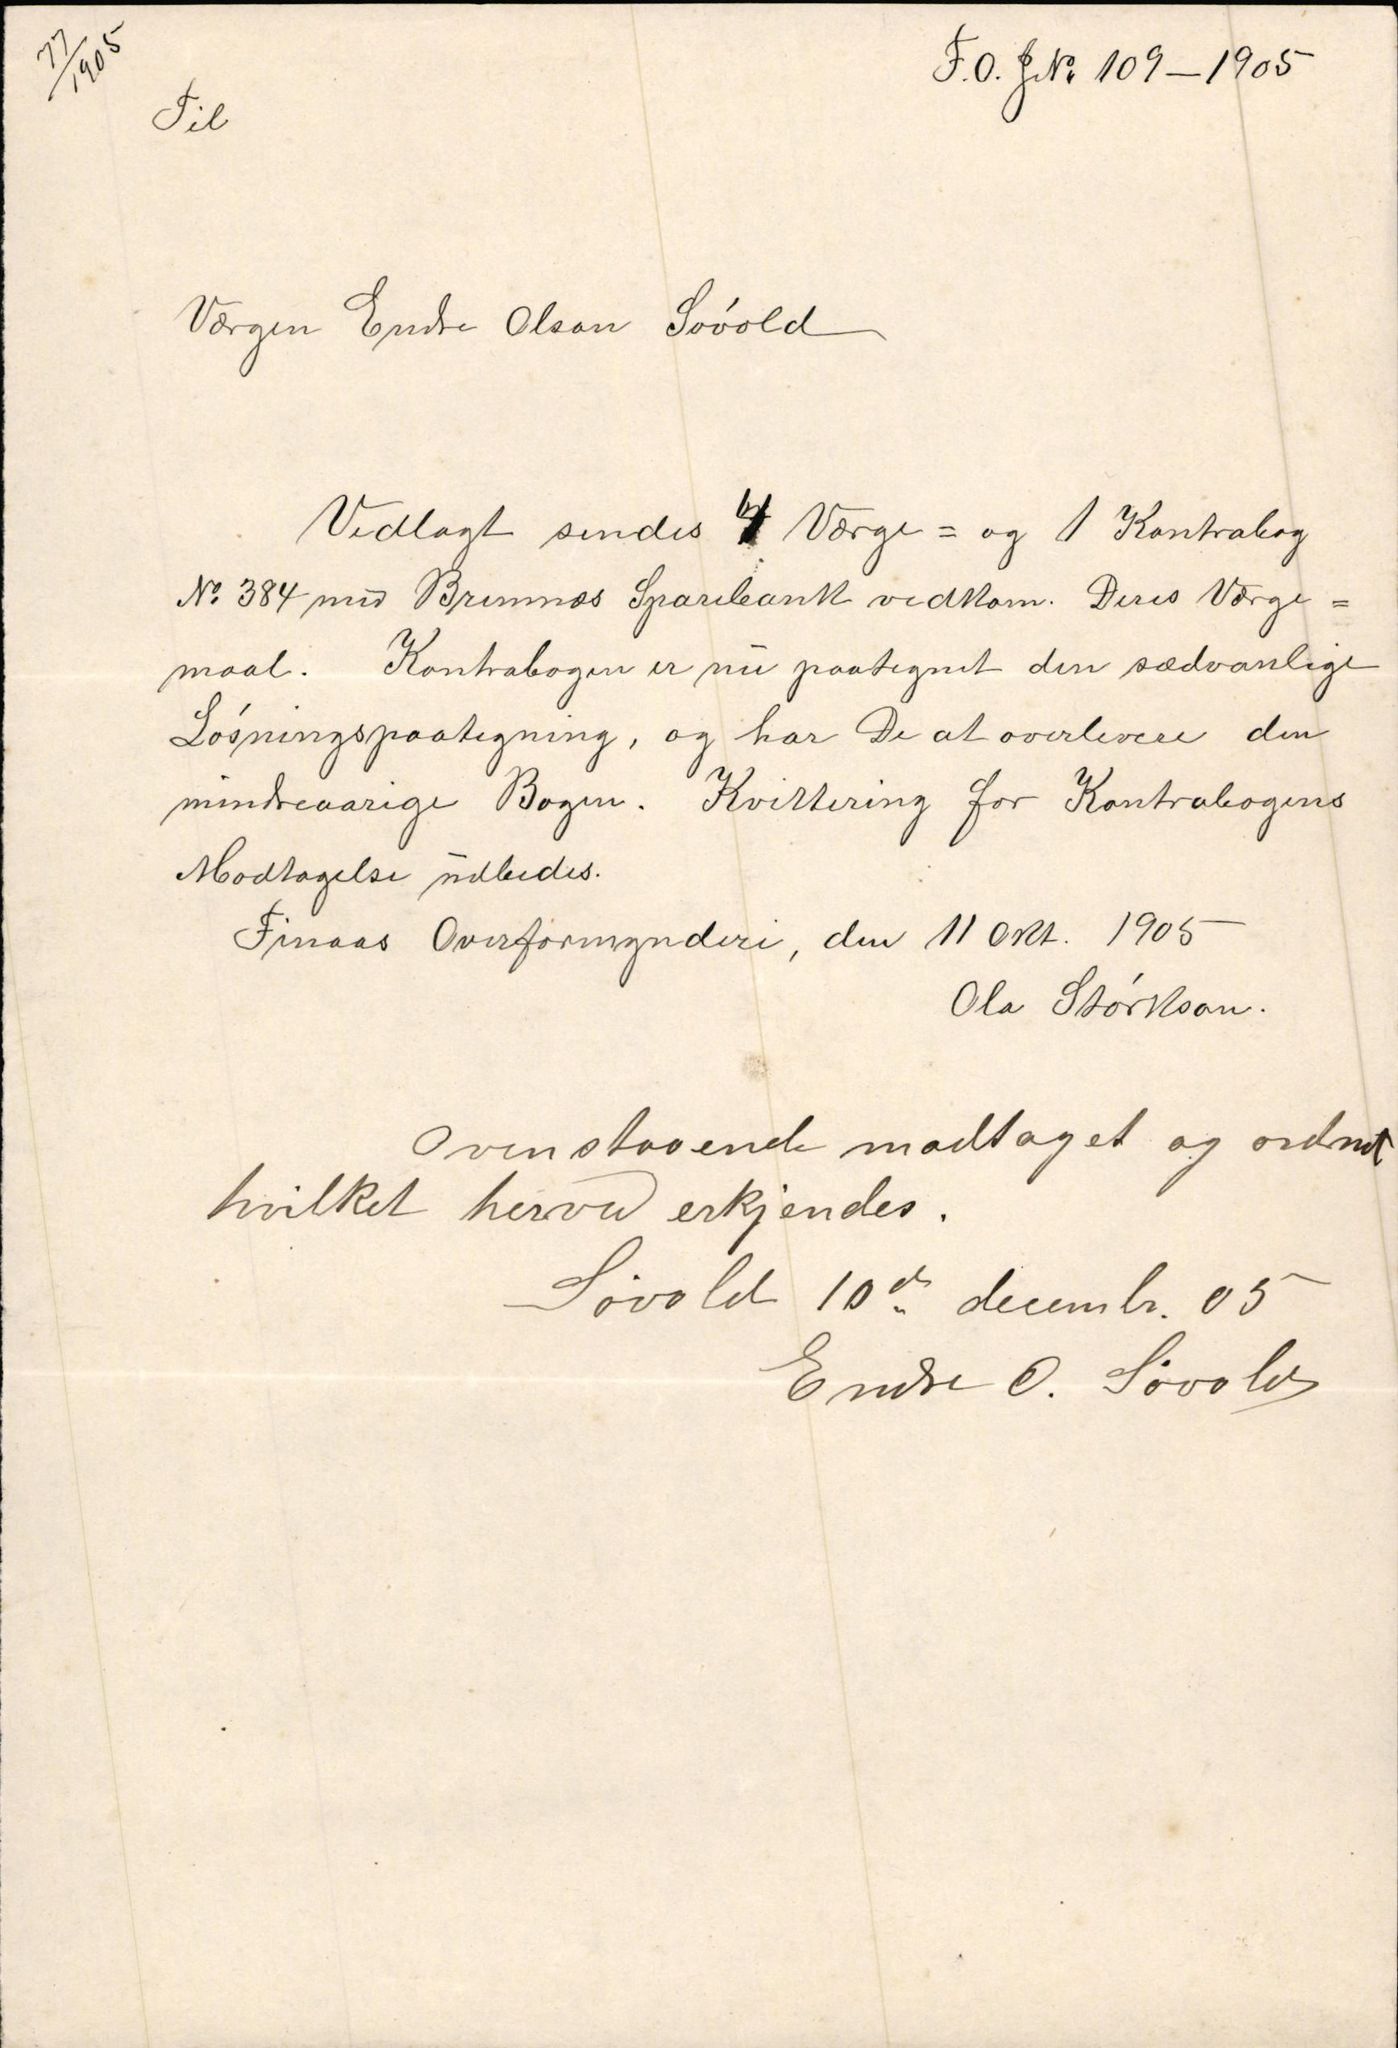 77/1905
F.O. J.No. 109–1905
Til
Værgen Endre Olson Søvold
Vedlagt sendes 4 Værge= og 1 Kontrabog
No. 384 med Bremnæs Sparebank vedkom. Deres Værge=
maal. Kontrabogen er nu paategnet den sædvanlige
Løsningspaategning, og har De at overlevere den
mindreaarige Bogen. Kvittering for Kontrabogens
Modtagelse udbedes.
Finaas Overformynderi, den 11 Okt. 1905
Ola Størkson.
Ovenstaaende modtaget og ordnet
hvilket herved erkjendes.
Søvold 10de decembr. 05
Endre O. Søvold